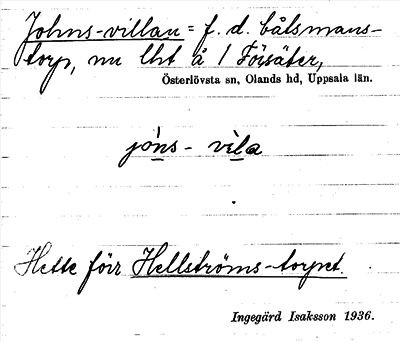 Johns-villan = f. d. båtsmans-
torp, nu lht å 1 Försäter,
Österlövsta sn, Olands hd, Uppsala län.
jòns - vìla
Hette förr Hellströms-torpet.
Ingegärd Isaksson 1936.